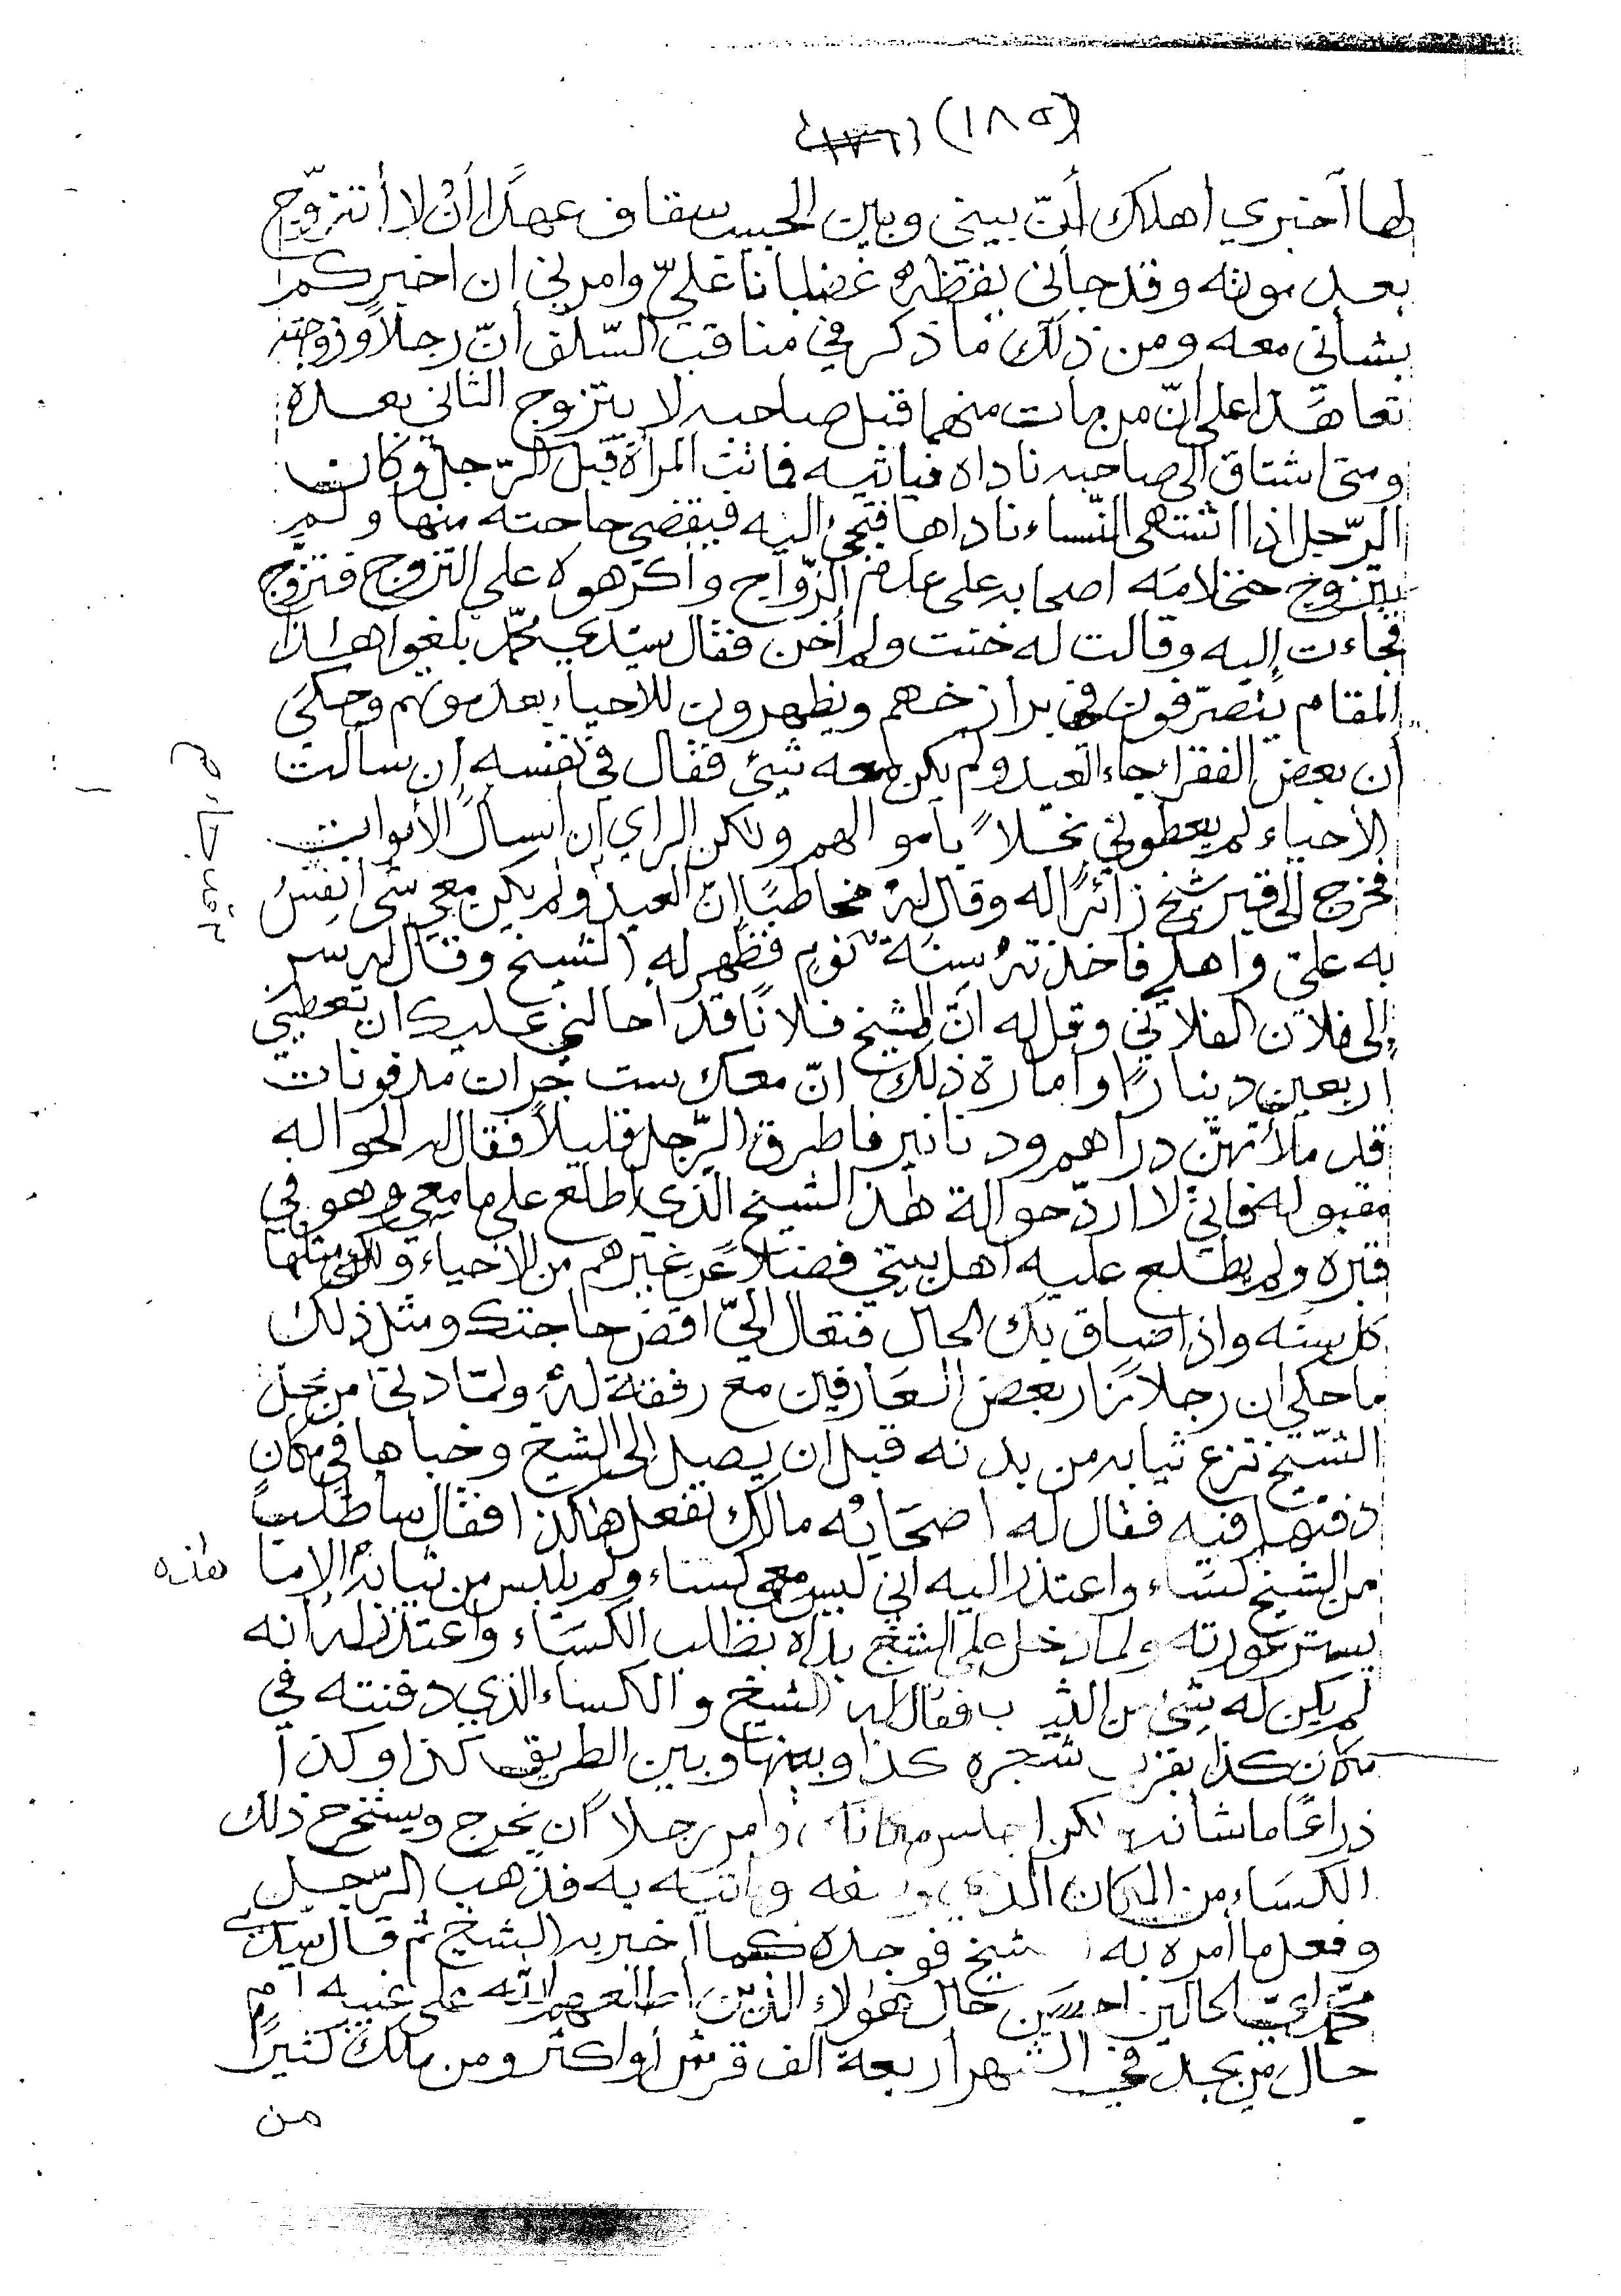 (١٨٥)
لها آخبري أهلك أنّ بيني وبين الحبيب سقاف عهدًا أنْ لا أتزوّج
بعد موته وقد جاني يقظه غضبانا عليّ وامرني ان اخبركم
بشأني معه ومن ذلك ما ذكر في مناقب السّلف أنّ رجلاً وزوجته
تعاهَدا على انّ من مات منهما قبل صاحبه لا يتزوج الثاني بعده
ومتى اشتاق الى صاحبه ناداه فياتيه فماتت المرأة قبل الرّجل وكان
الرّجل اذا اشتهى النّساء ناداها فتجئ اليه فيقضي حاجته منها ولم
يتزوج حتى لامَه اصحابه على عدم الزّواج واكرهوه على التزوج فتزوّج
فجاءت إليه وقالت له خنت ولم أخن فقال سيّدي محمّد بلغوا هاذا
المقام يتصرّفون في برازخهم ويظهرون للأحياء بعد موتهم وحكي
أن بعض الفقرا جاء العيد ولم يكن معه شيئ فقال في نفسه إن سألت
الأحياء لم يعطوني بخلاً بأموالهم ولكن الراي أن أسأل الأموات
فخرج إلى قبر شيخ زائرًا له وقال له مخاطبًا إنّ العيد ولم يكن معي شي أنفِسُ
به عليّ واهلي فاخذتهُ سِنَة نوم فظهر له الشيخ وقال له سر
إلى فلان الفلاني وقل له انّ الشيخ فلانًا قد احالني عليك ان تعطيني
اربعين دينارًا وأمارة ذلك انّ معك ست جرات مدفونات
قد ملأتهنّ دراهم ودنانير فاطرق الرّجل قليلاً فقال له الحواله
مقبوله فانّي لا اردّ حوالة هذا الشيخ الذي اطلع على ما معي وهو في
قبره ولم يطلع عليه أهل بيتي فضلاً عن غيرهم من الاحياء ولك مثلها
كل سنَه واذا ضاق بك الحال فتعال اليّ اقض حاجتك ومثل ذلك
ما حكي ان رجلاً زار بعض العَارفين مع رفقة لهُ ولمّا دنى من محَلّ
الشّيخ نزع ثيابه من بدنه قبل ان يصل الى الشيخ وخباها في مكان
دفنها فيه فقال له اصحَابُه مالك تفعل هاكذا فقال ساطلب
هاذه
من الشيخ كسَاء واعتذر اليه اني ليس معي كساء ولم يلبس من ثيابهُ إلا ما
يستر عورته ولما دخل على الشيخ بداه بطلب الكسَاء واعتذر له أنه
لم يكن له شيئ من الثياب فقال له الشيخ والكساء الذي دفنته في
مكان كذا بقرب شجره كذا وبينها وبين الطريق كذا وكذا
ذراعًا ما شانه ولكن اجلس مكانك وأمر رجلاً أن يخرج ويستخرج ذلك
الكسَاء من المكان الذي وصفه وياتيَه به فذهب الرّجل
وفعل ما أمره به الشيخ فوجده كما اخبر به الشيخ ثم قال سيدي
محمّد أيّ الحالين احسَن حال هؤلاء الذين أطلعهم الله على غيبه أم
حال من يجد في الشهر أربعة آلف قرش أو اكثر ومن ملك كثيرًا
من